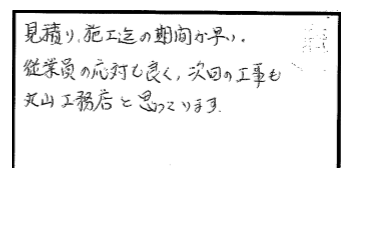 見積り、施工迄の期間が早い。
従業員の応対も良く、次回の工事も
丸山工務店と思っています。